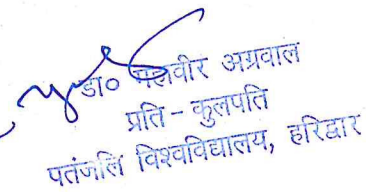 डा० महावीर अग्रवाल
प्रति - कुलपति
पतंजलि विश्वविद्यालय, हरिद्वार